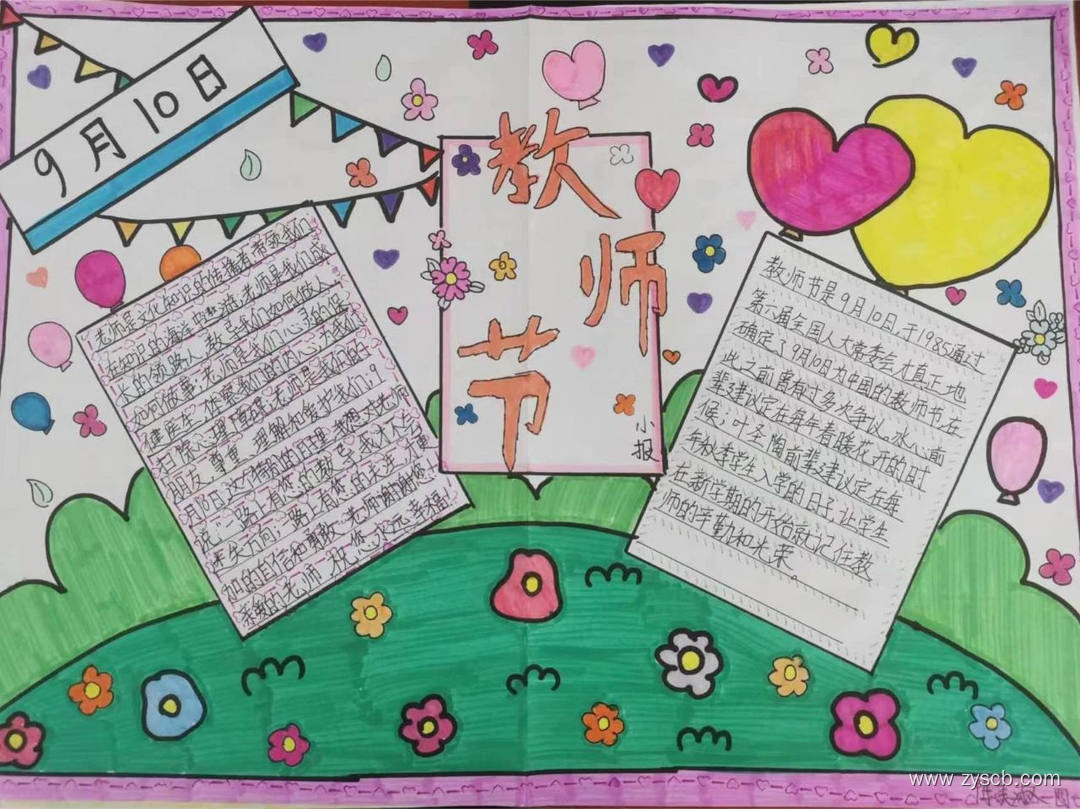 9月10日
教师节
小报
老师是文化知识的传播者,带领我们
在知识的海洋里遨游;老师是我们成
长的领路人,教导我们如何做人,
如何做事;老师是我们心灵的保
健医生,体察我们的内心,为我们
扫除心理障碍;老师是我们的
朋友,尊重、理解和爱护我们,9
月10日这个特别的日子里,我想对老师
说:"一路上有您的教导,我才不会
迷失方向;一路上有您的关注,才更
加的自信和勇敢,老师谢谢您!"
亲爱的老师,祝您永远幸福!
教师节是9月10日,于1985通过
第六届全国人大常委会才真正地
确定了9月10日为中国的教师节,在
此之前曾有过多次争议。冰心前
辈建议定在每年春暖花开的时
候,叶圣陶前辈建议定在每
年秋季学生入学的日子,让学生
在新学期的开始就记住教
师的辛勤和光荣。
www.zyscb.com